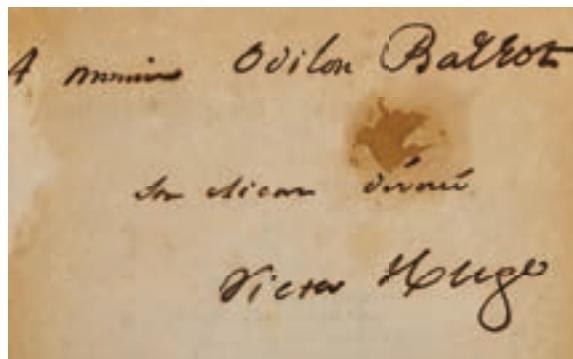 A monsieur Odilon Barrot
son client dévoué
Victor Hugo